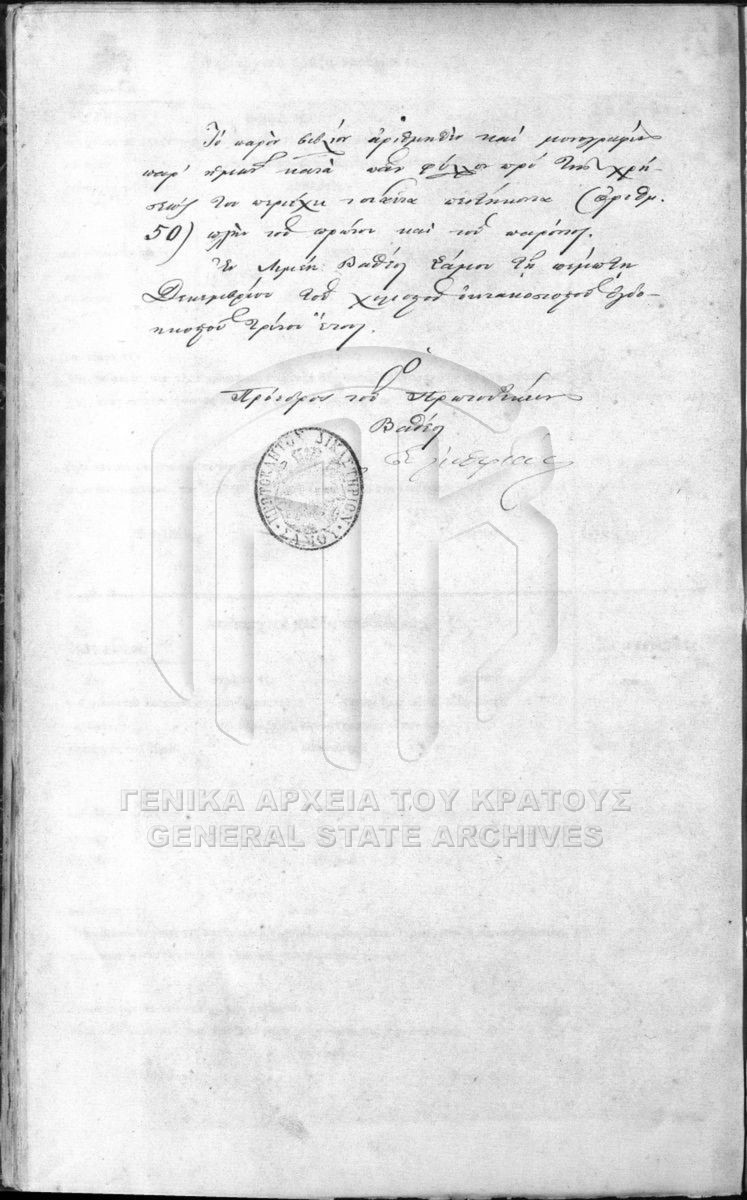 Τὸ παρὸν βιβλίον ἀριθμηθὲν καὶ μονογραφὲν
παρ' ἡμῶν κατὰ πᾶν φύλλον πρὸ τῆς χρή-
σεώς του περιέχει τοιαῦτα πεντήκοντα (ἀριθμ.
50) πλὴν τοῦ πρώτου καὶ τοῦ παρόντος.
Ἐν Λιμένι Βαθέος Σάμου τῇ πέμπτῃ
Δεκεμβρίου τοῦ χιλιοστοῦ ὀκτακοσιοστοῦ ὀγδο-
ηκοστοῦ τρίτου ἔτους.
Ὁ
Πρόεδρος τοῦ Πρωτοδικείου
Βαθέος
ΠΡΩΤΟΚΛΗΤΟΝ ΔΙΚΑΣΤΗΡΙΟΝ
ΣΑΜΟΥ
ΓΕΝΙΚΑ ΑΡΧΕΙΑ ΤΟΥ ΚΡΑΤΟΥΣ
GENERAL STATE ARCHIVES